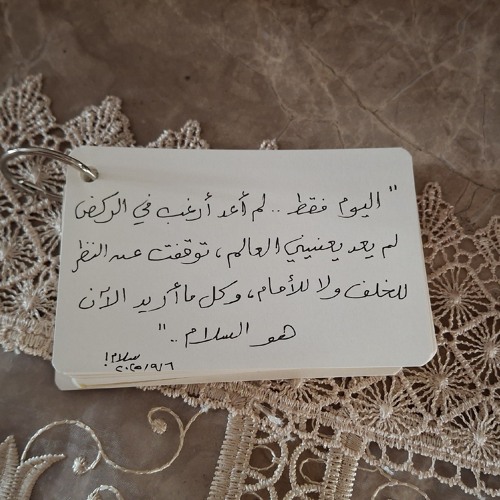 " اليوم فقط .. لم أعد أرغب في الركض
لم يعد يعنيني العالم ، توقفت عن النظر
للخلف ولا للأمام ، وكل ما أريد الآن
هو السلام .. "
سلام!
٢٠٢٥/٩/٦